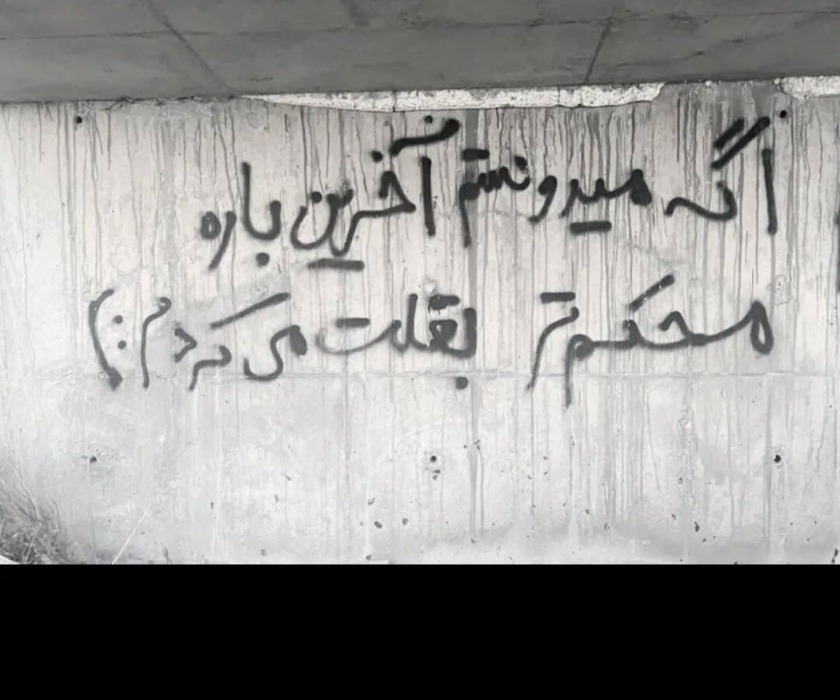 اگه میدونستم آخرین باره
محکم تر بقلت می کردم :)